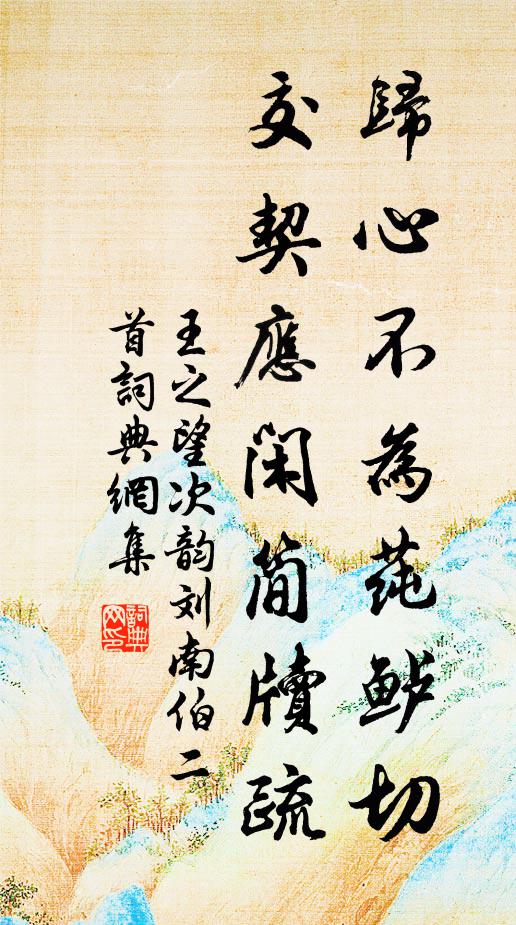 歸心不為莼鲈切
交契應閑簡牘疏
王之望次韵刘南伯二
首詞典網集
詞典
网印